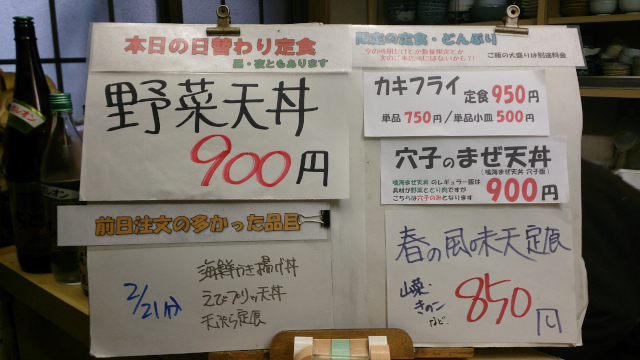 本日の日替わり定食
昼・夜ともあります
野菜天丼
900円
前日注文の多かった品目
2/21分
海鮮かき揚げ丼
えびプリッ天丼
天ぷら定食
限定の定食・どんぶり
ご飯の大盛りは別途料金
カキフライ 定食 950円
単品 750円/単品小皿 500円
穴子のまぜ天丼
(鳴海まぜ天丼 穴子版)
鳴海まぜ天丼 のレギュラー版は
具材が野菜ととり肉ですが
こちらは穴子のみとなります
900円
春の風味天定食
山菜・
きのこ
など
850円